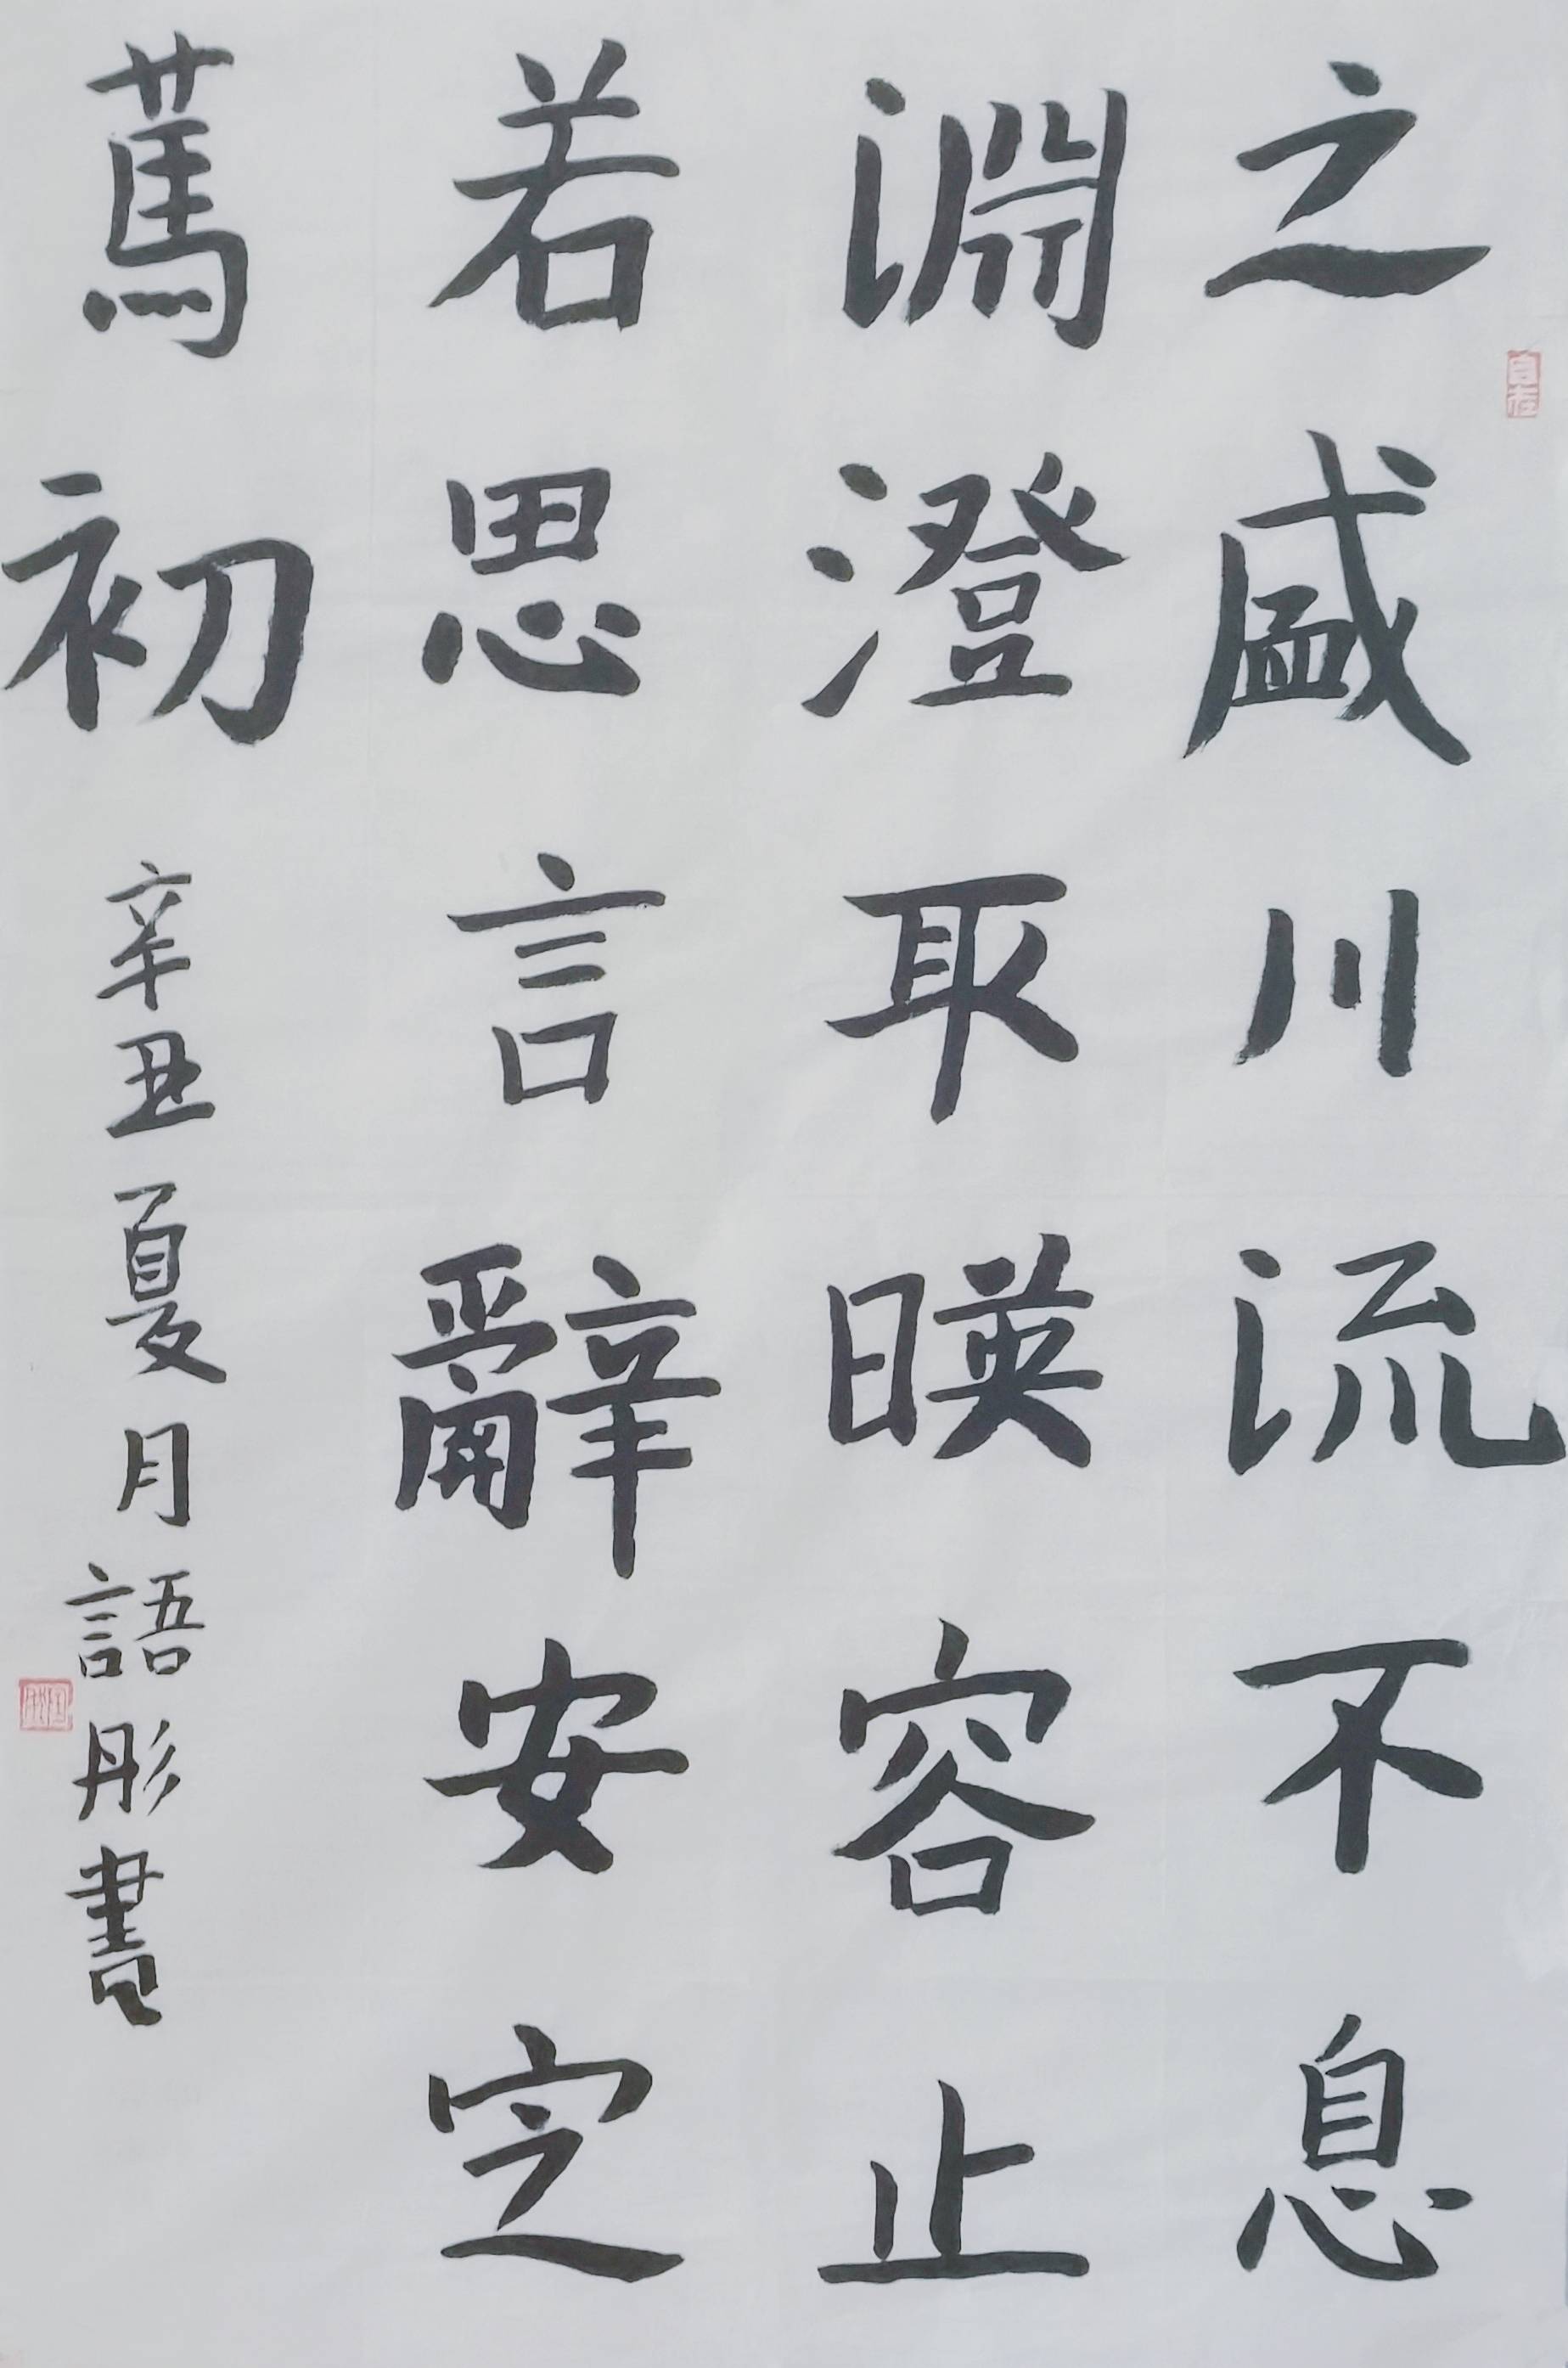 之盛川流不息
淵澄取暎容止
若思言辭安定
篤初
辛丑夏月語彤書
自在